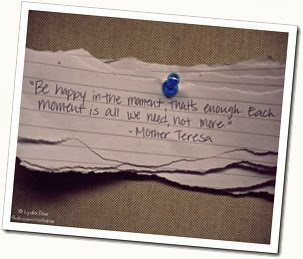 "Be happy in the moment, that's enough. Each
moment is all we need, not more."
-Mother Teresa
© Lydia Dae